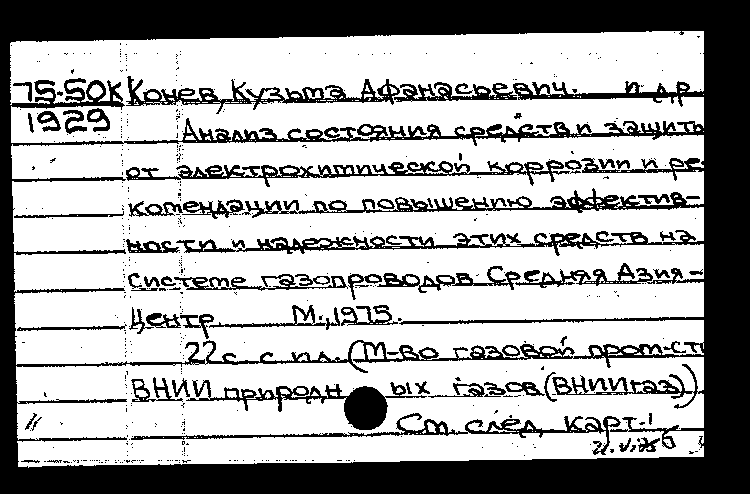 75-50К Конев, Кузьма Афанасьевич. и др.
1929 Анализ состояния средств и защиты
от электрохимической коррозии и ре-
комендации по повышению эффектив-
ности и надежности этих средств на
системе газопроводов Средняя Азия -
Центр М., 1975.
22 с. с ил. (М-во газовой пром-сти
ВНИИ природн ых газов (ВНИИгаз))
См. след. карт.!